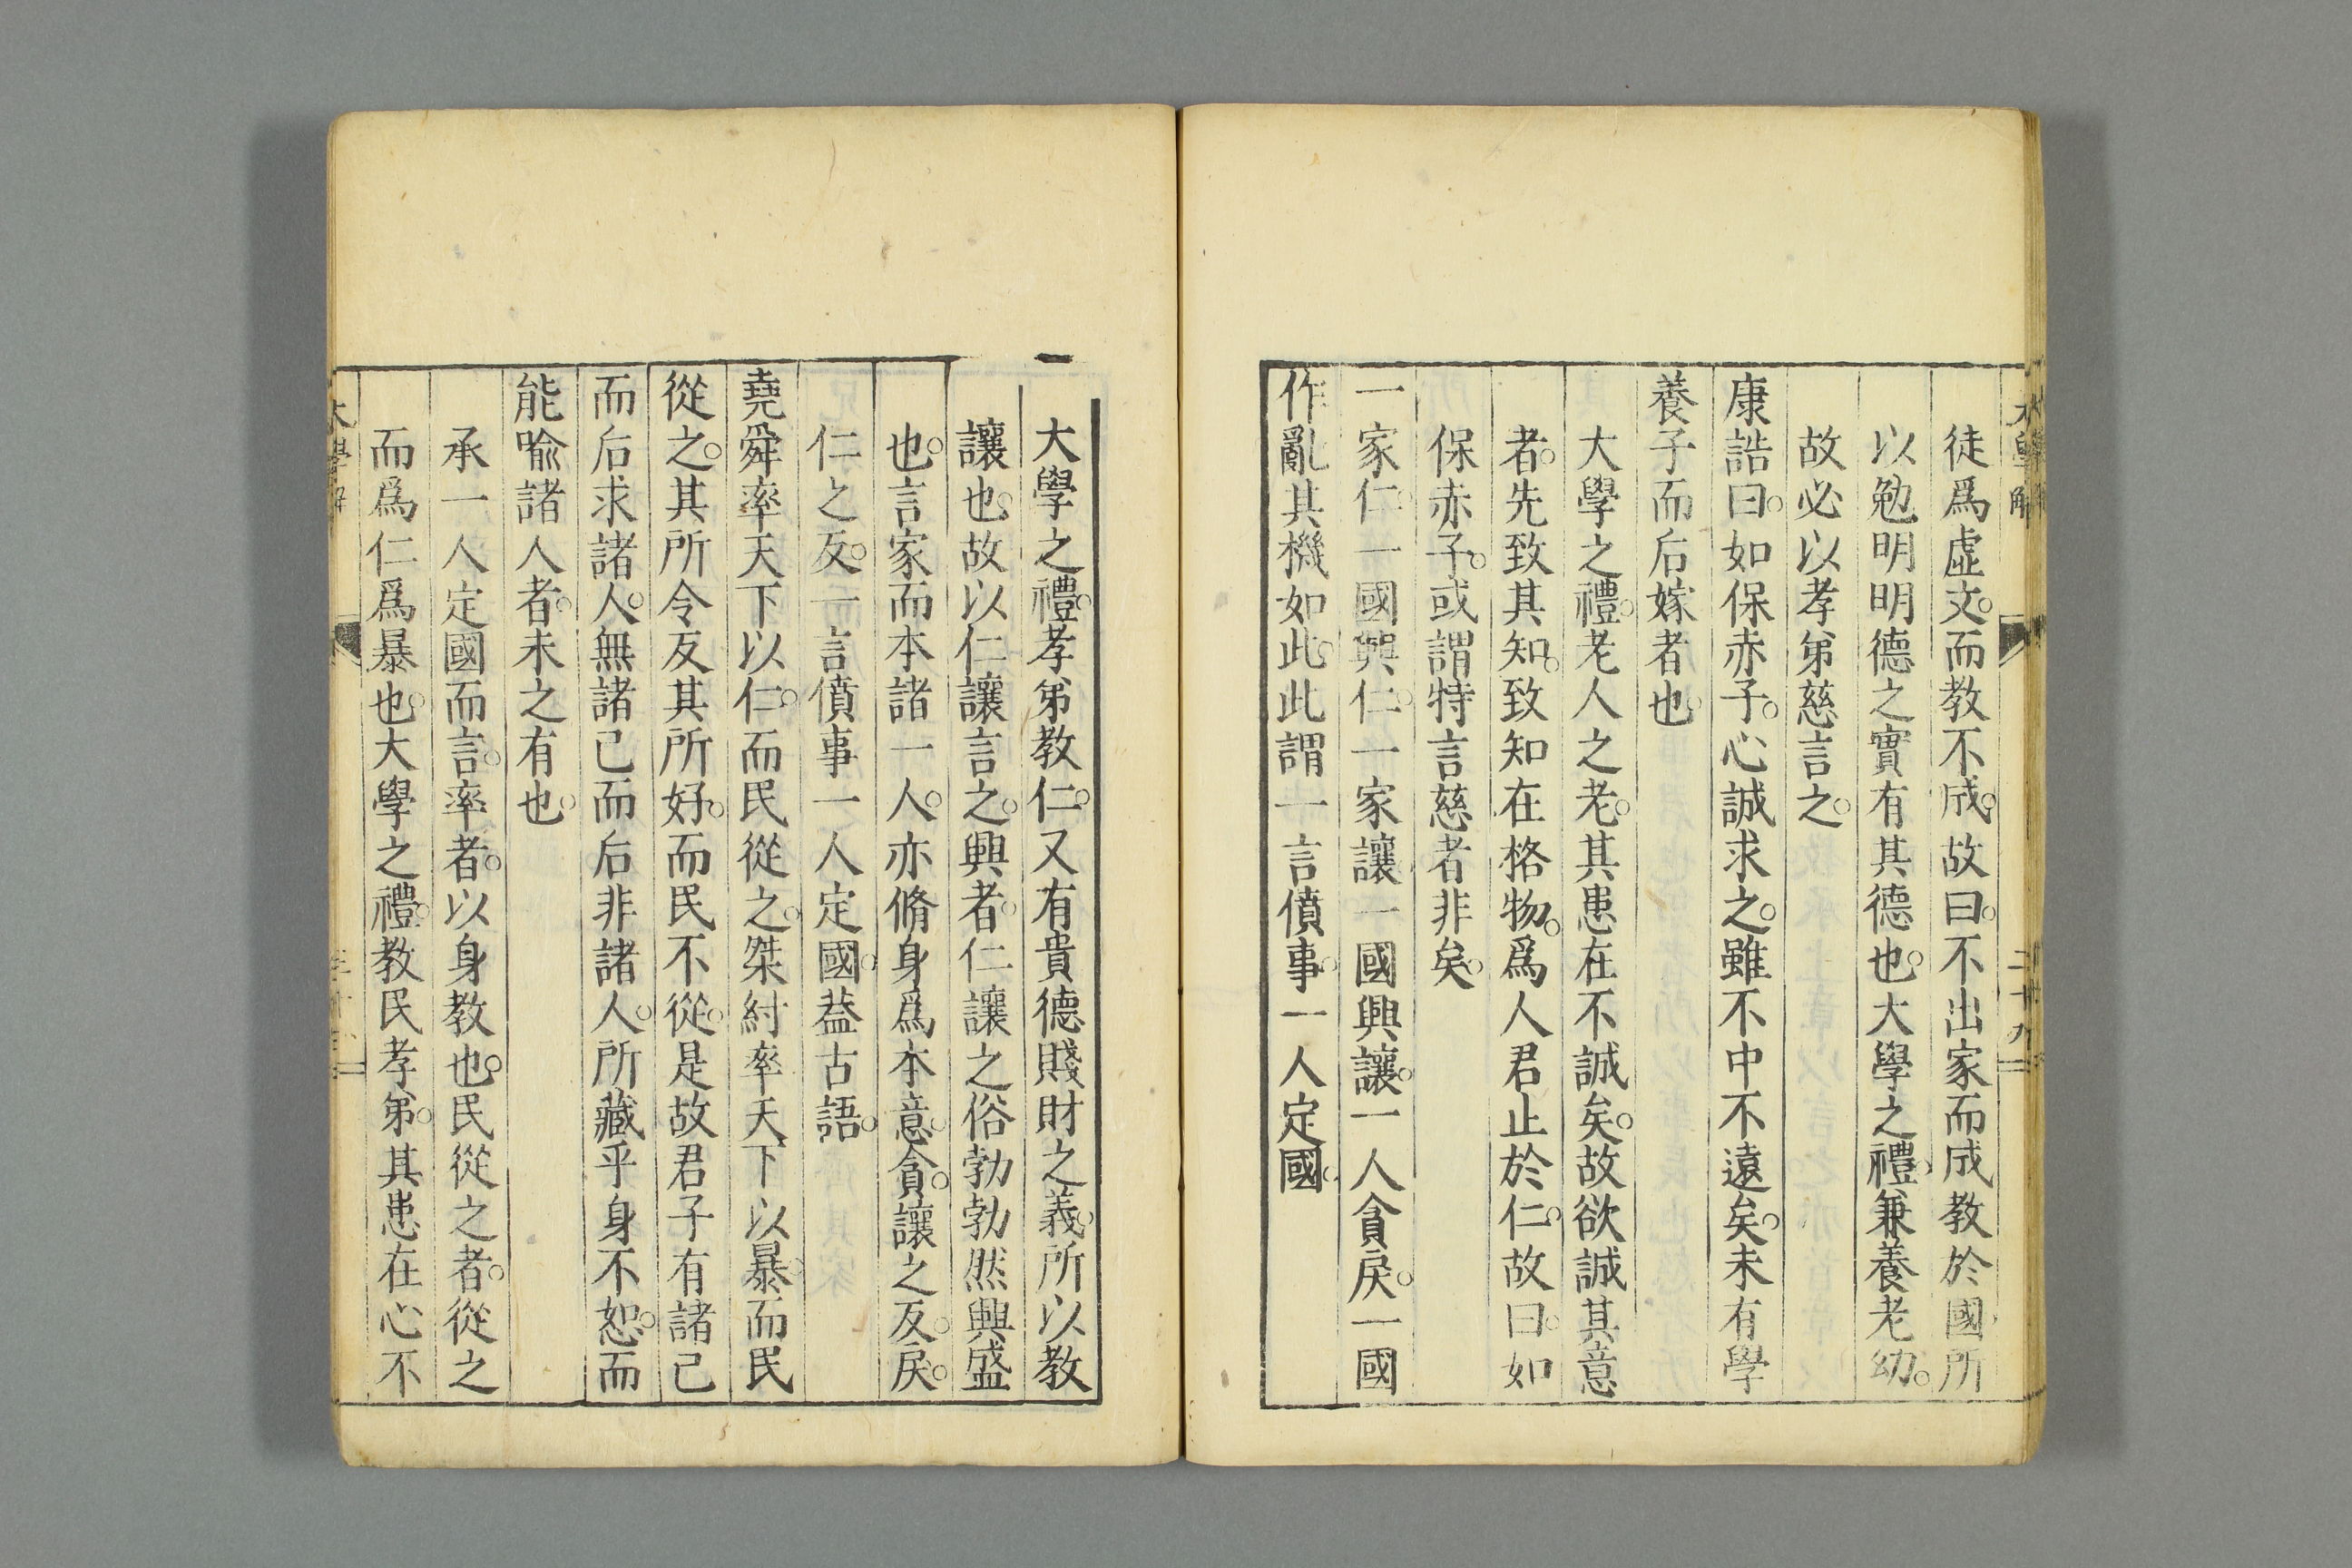 徒爲虛文。而教不成。故曰。不出家而成教於國所
以勉明明德之實有其德也。大學之禮兼養老幼。
故必以孝弟慈言之。
康誥曰。如保赤子。心誠求之。雖不中不遠矣。未有學
養子而后嫁者也。
大學之禮。老人之老。其患在不誠矣。故欲誠其意
者。先致其知。致知在格物。爲人君止於仁。故曰。如
保赤子。或謂特言慈者非矣。
一家仁。一國興仁。一家讓一國興讓。一人貪戾。一國
作亂其機如此。此謂一言僨事。一人定國。
大學之禮。孝弟教仁。又有貴德賤財之義。所以教
讓也。故以仁讓言之。興者。仁讓之俗勃勃然興盛
也。言家而本諸一人。亦脩身爲本意。貪讓之反。戾。
仁之反。一言僨事一人定國。蓋古語。
堯舜率天下以仁。而民從之。桀紂率天下以暴。而民
從之。其所令反其所好。而民不從。是故君子有諸己
而后求諸人。無諸己而后非諸人。所藏乎身不恕。而
能喩諸人者。未之有也。
承一人定國而言。率者。以身教也。民從之者。從之
而爲仁爲暴也。大學之禮。教民孝弟。其患在心不